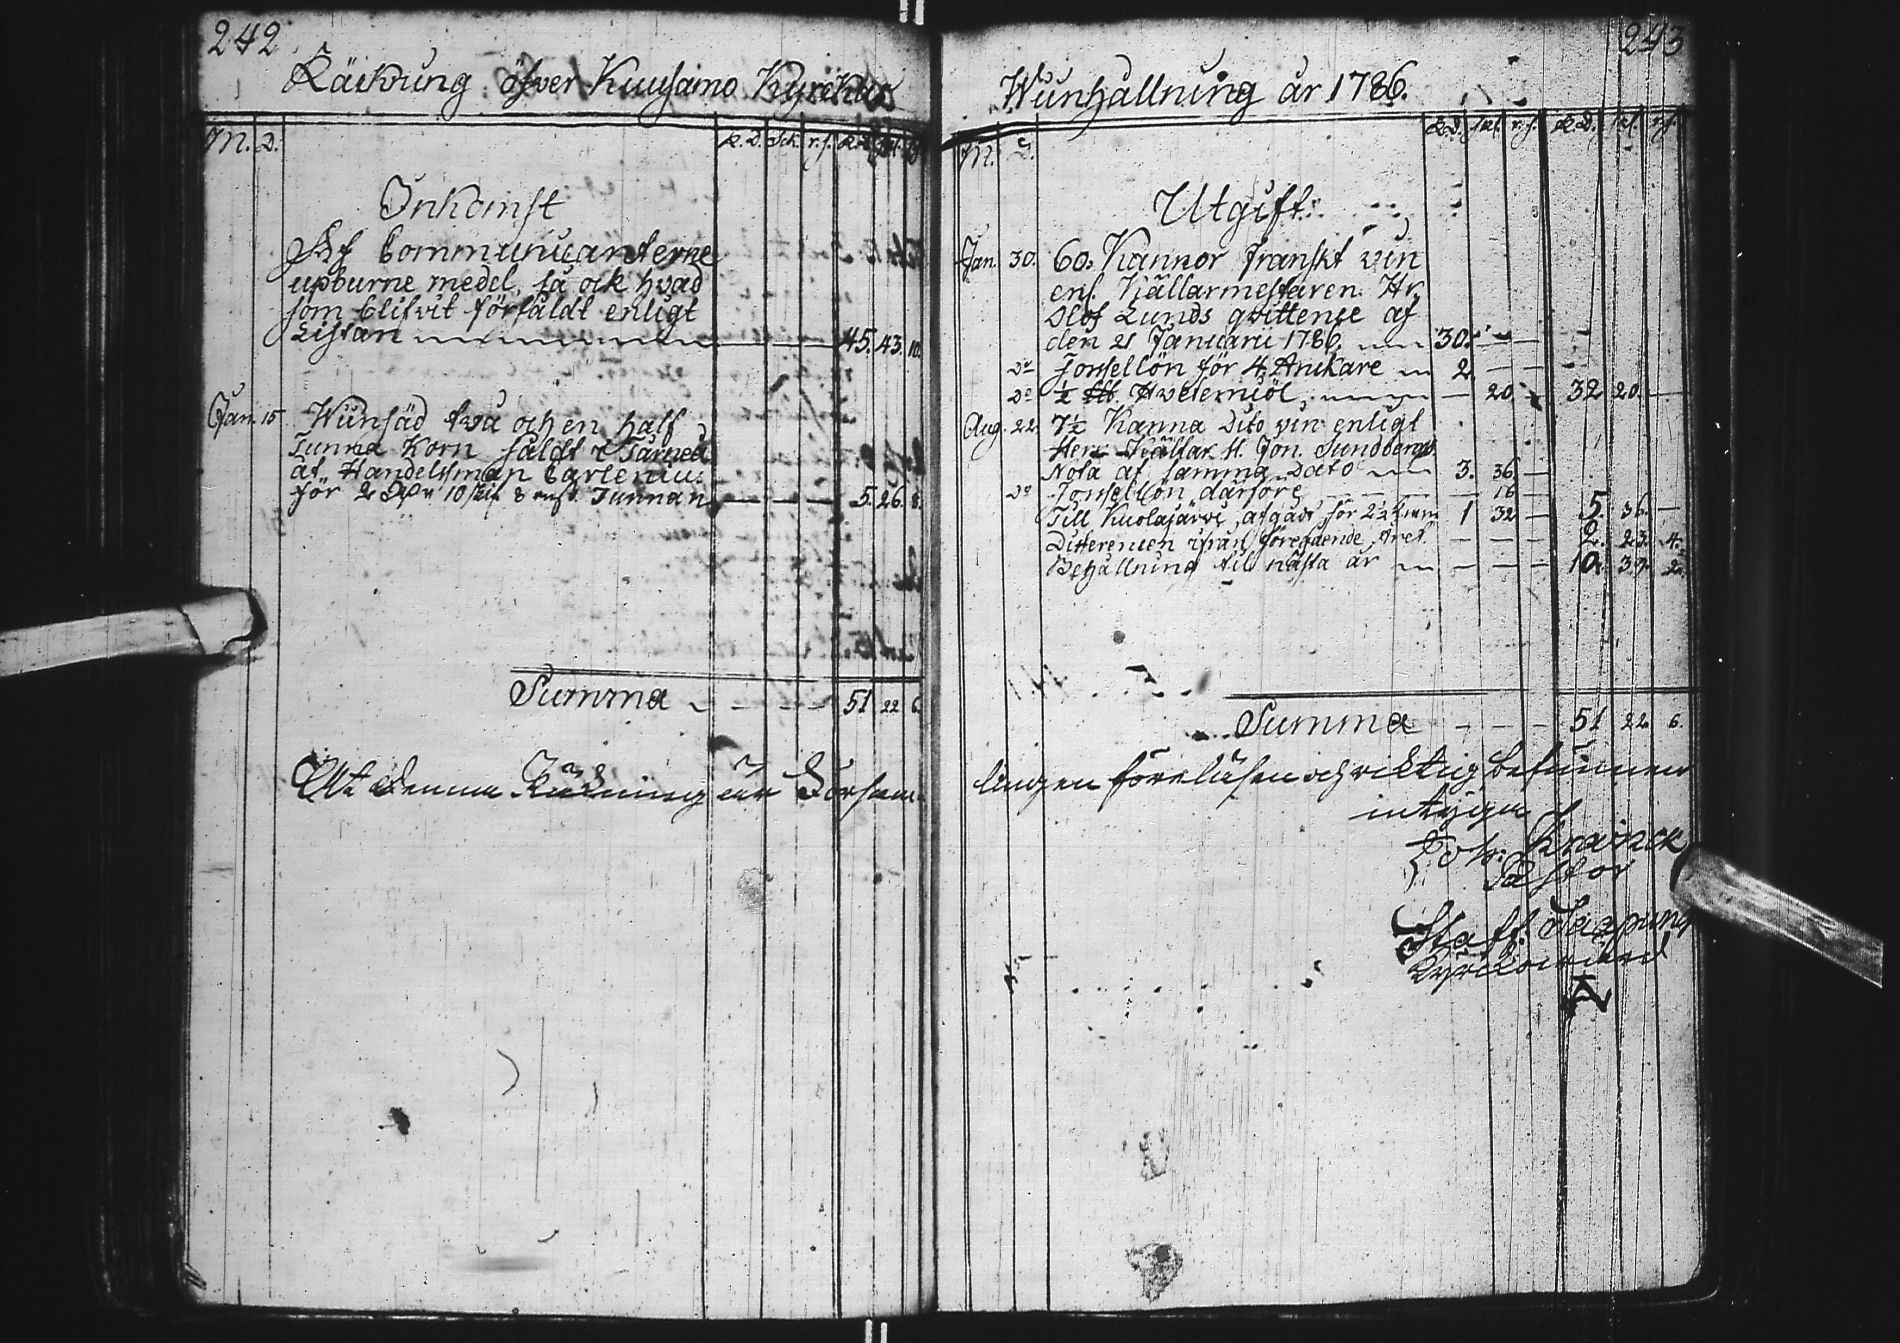 242
Räkning öfver Kuusamo Kyrckas
M. D. R.D. Sck. r.s. R.D.
Inkomst
Af Communicanterne
upburne medel, så ock hvad
som blifvit försåldt enligt
Listan 45. 43. 10.
Jan. 15. Wiinsäd två och en half
Tunna Korn såldt i Tårneå
åt Handelsman Carlenius
för 2 10 8 Tunnan 5. 26. 8.
Summa 51 22 6.
At denna Räkning är Försam-
243
Wiinhållning år 1786.
M. D. R.D. skl. r.s. R.D. skl. r.s.
Utgift
Jan. 30. 60. Kannor franskt vin
enl. Källarmestaren Hr
Olof Lunds qvittence af
den 21 Januarii 1786. 30.
Do Fonsellön för 4 Anckare 2.
Do ½ Hvetemiöl 20. 32 20.
Aug. 22. 7½ Kanna Dito vin enligt
Herr Källar M. Jon. Sundbergs
Nota af samma Dato 3. 36.
Do Fonsellön därföre 16
Till Kuolajärvi afgådt för 2½ kann 1 32 5. 36.
Differencen ifrån föregående året 2. 23. 4.
Behållning til nästa år 10. 39. 2.
Summa 51 22 6.
lingen föreläsen och riktig befunnen
intyga
Joh: Krank
Pastor
Staff.
Kyrckovärd